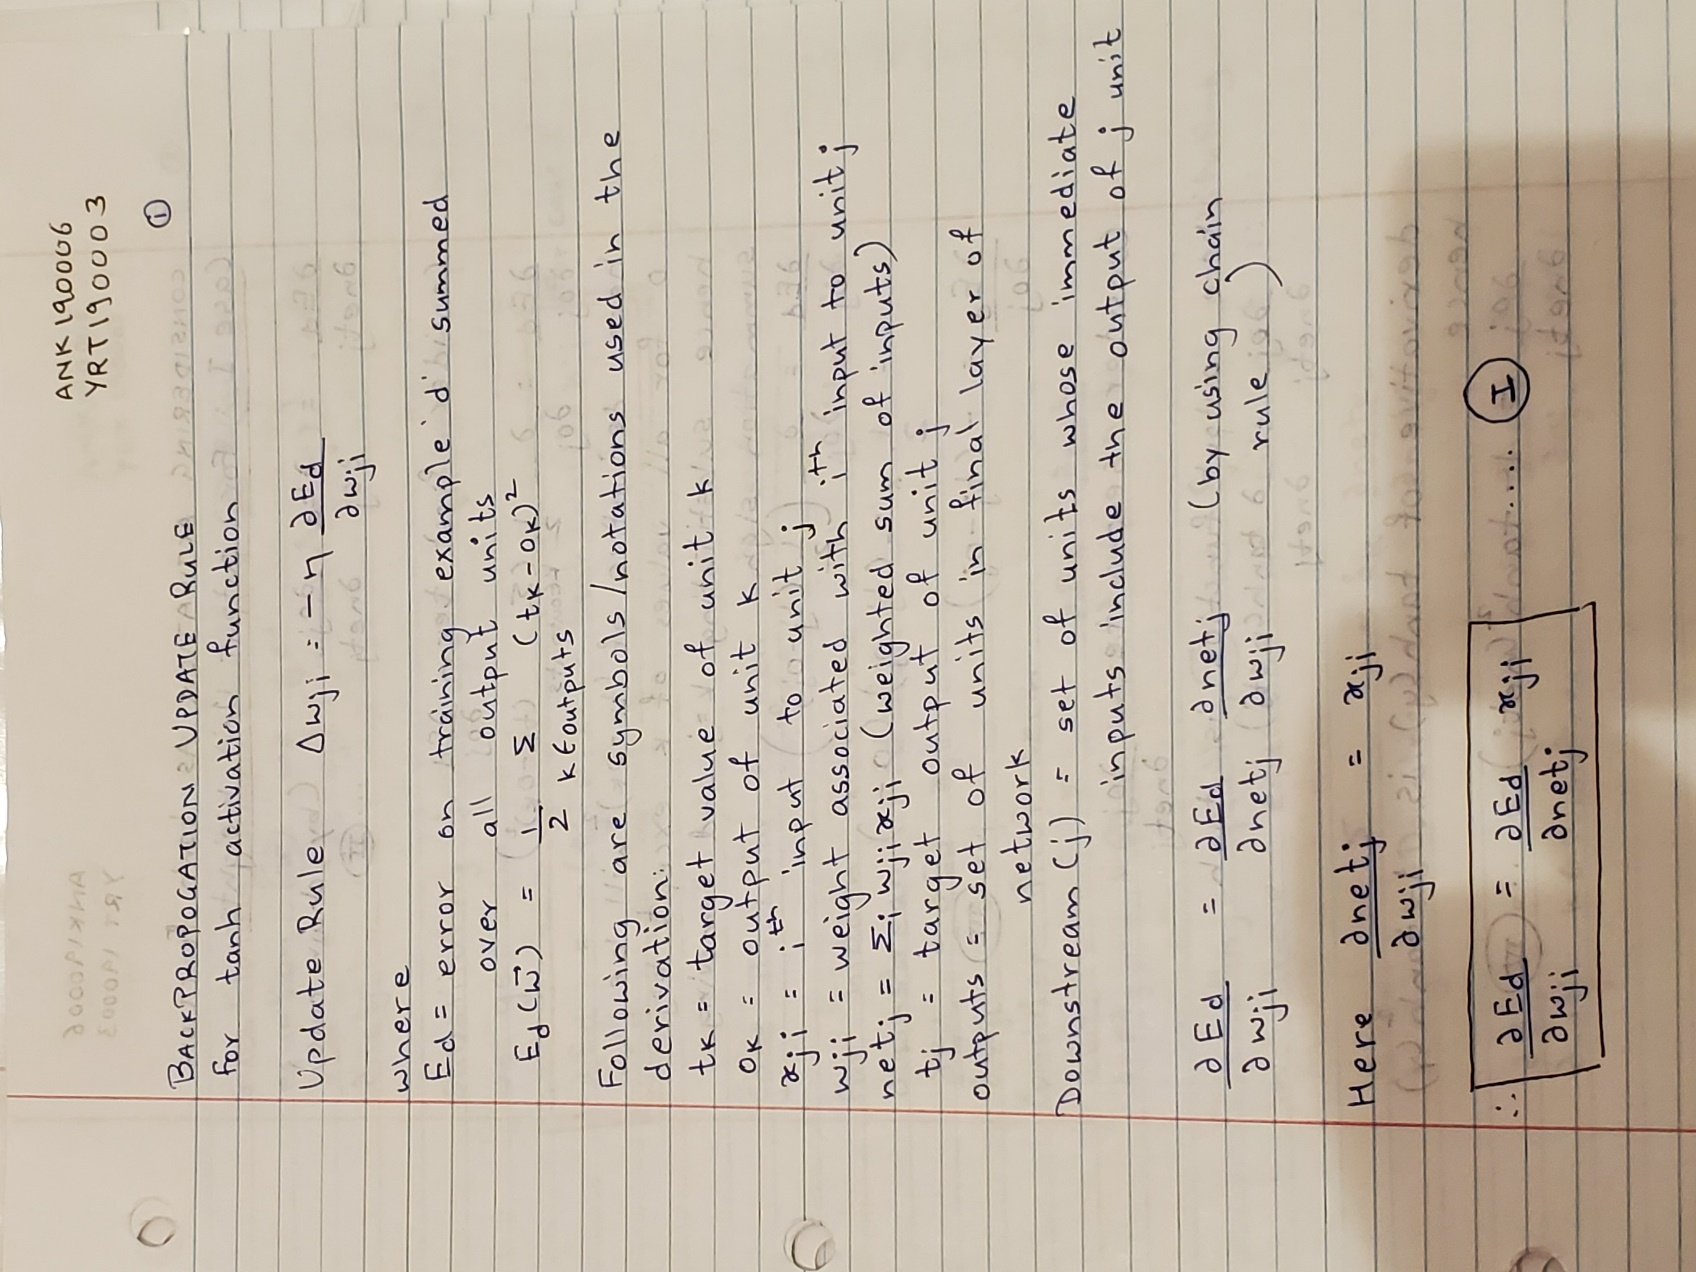 ANK190006
YRT190003
①
BACKPROPOGATION UPDATE RULE
for tanh activation function
Update Rule Δwji = -η ∂Ed/∂wji
where
Ed = error on training example 'd' summed
over all output units
Ed(w⃗) = 1/2 Σ k∈outputs (tk-ok)²
Following are symbols/notations used in the
derivation:
tk = target value of unit k
ok = output of unit k
xji = ith input to unit j
wji = weight associated with ith input to unit j
netj = Σi wji xji (weighted sum of inputs)
tj = target output of unit j
outputs = set of units in final layer of
network
Downstream(j) = set of units whose immediate
inputs include the output of j unit
∂Ed/∂wji = ∂Ed/∂netj · ∂netj/∂wji (by using chain
rule)
Here ∂netj/∂wji = xji
∴ ∂Ed/∂wji = ∂Ed/∂netj xji ..... Ⓘ